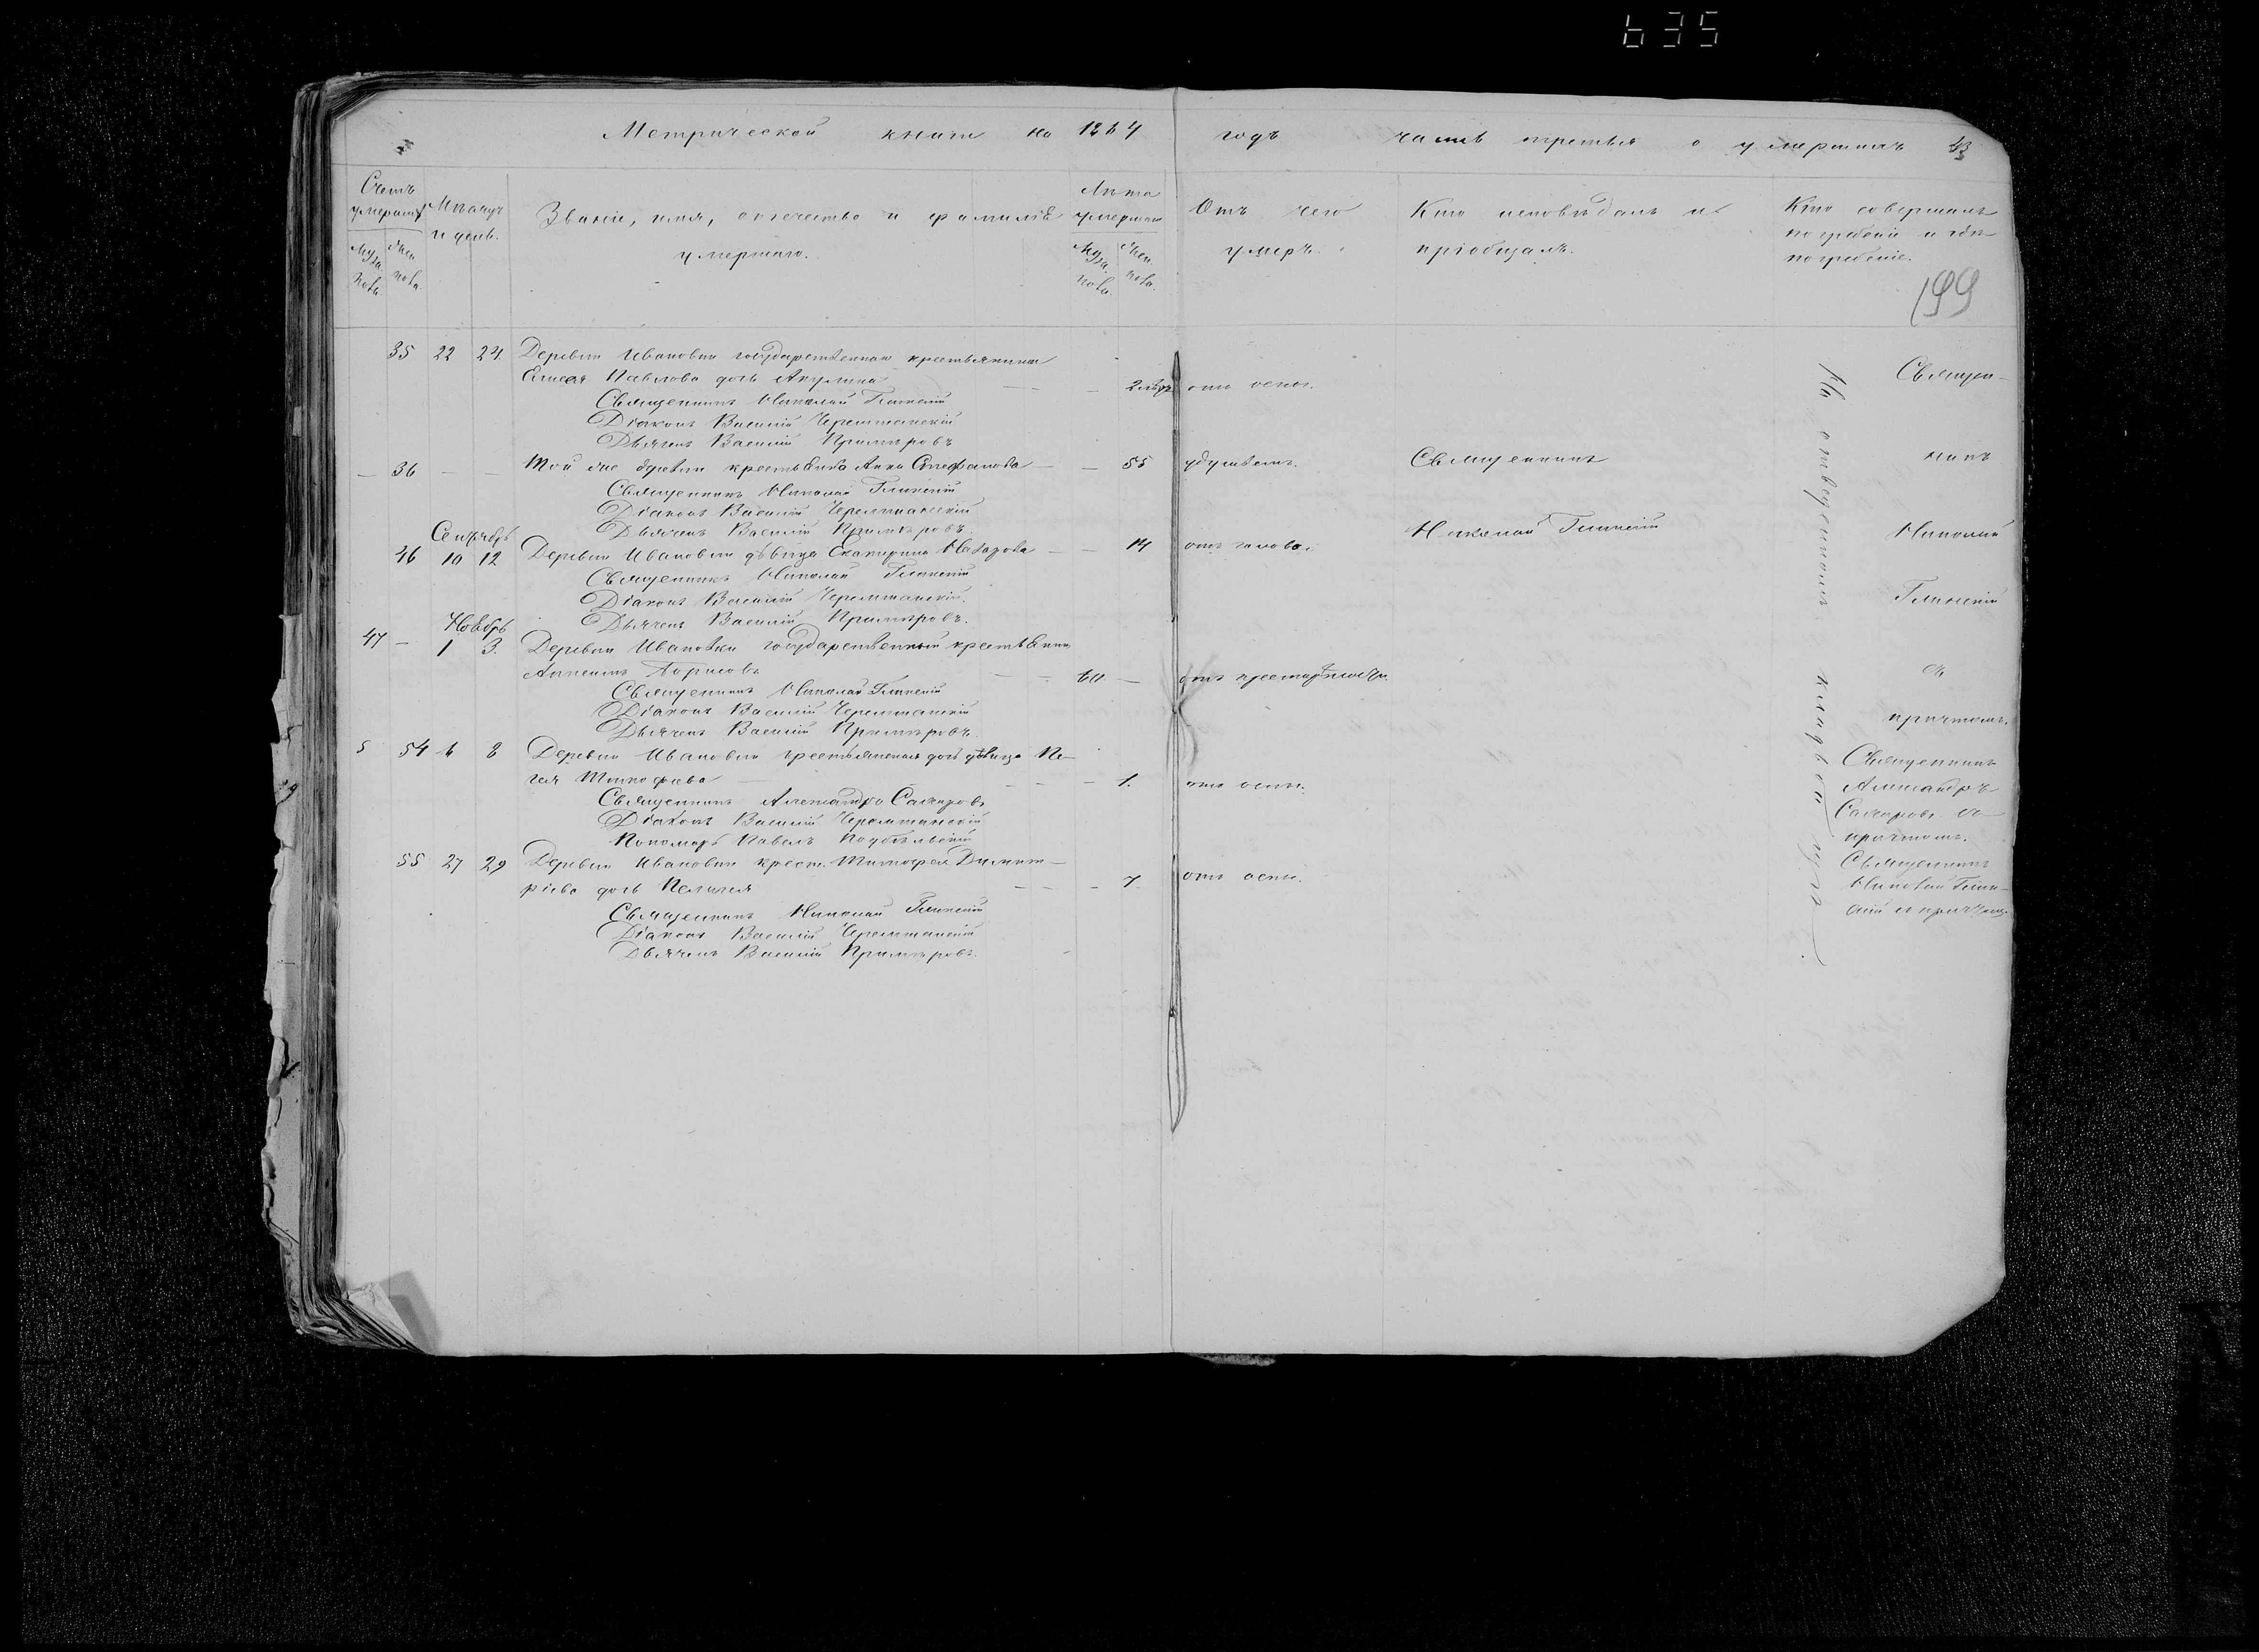 635
Метрической книги на 1864 годъ часть третья о умершихъ 43
Счетъ умершихъ
Муж. пола.
Жен. пола.
Мѣсяцъ и день.
Званіе, имя, отчество и фамилія
умершаго.
Лѣта умершаго
Муж. пола.
Жен. пола.
Отъ чего
умеръ.
Кто исповѣдалъ и
пріобщалъ.
Кто совершалъ
погребеніе и гдѣ
погребены.
199
35 22 24 Деревни Ивановки государственнаго крестьянина
Елисея Павлова дочь Акулина — — 2 отъ оспы.
Священникъ Николай Глинскій
Діаконъ Василій Черемшанскій
Дьячекъ Василій Примѣровъ
— 36 — — Той же деревни крестьянка Анна Стефанова — — 55 удушьемъ. Священникъ
Священникъ Николай Глинскій
Діаконъ Василій Черемшанскій
Дьячекъ Василій Примѣровъ. Николай Глинскій
Сентябрь
46 10 12 Деревни Ивановки дѣвица Екатерина Назарова — — 14
Священникъ Николай Глинскій
Діаконъ Василій Черемшанскій.
Дьячекъ Василій Примѣровъ.
Ноябрь
47 — 1 3. Деревни Ивановки государственный крестьянинъ
Борисовъ — — 60 — отъ престарѣлости.
Священникъ Николай Глинскій
Діаконъ Василій Черемшанскій
Дьячекъ Василій Примѣровъ.
5 54 6 8 Деревни Ивановки крестьянская дочь дѣвица Пе-
лагея Тимофеева — — 1. отъ оспы.
Священникъ Александръ Сахаровъ
Діаконъ Василій Черемшанскій
Пономарь Павелъ Подбѣльскій
55 27 29 Деревни Ивановки крест. Тимофея Димит-
ріева дочь Пелагея — — — 7 отъ оспы.
Священникъ Николай Глинскій
Діаконъ Василій Черемшанскій
Дьячекъ Василій Примѣровъ.
На отведенномъ кладбищѣ.
Священ-
никъ
Николай
Глинскій
съ
причтомъ.
Священникъ
Александръ
Сахаровъ съ
причтомъ.
Священникъ
Николай Глин-
скій съ причтомъ.